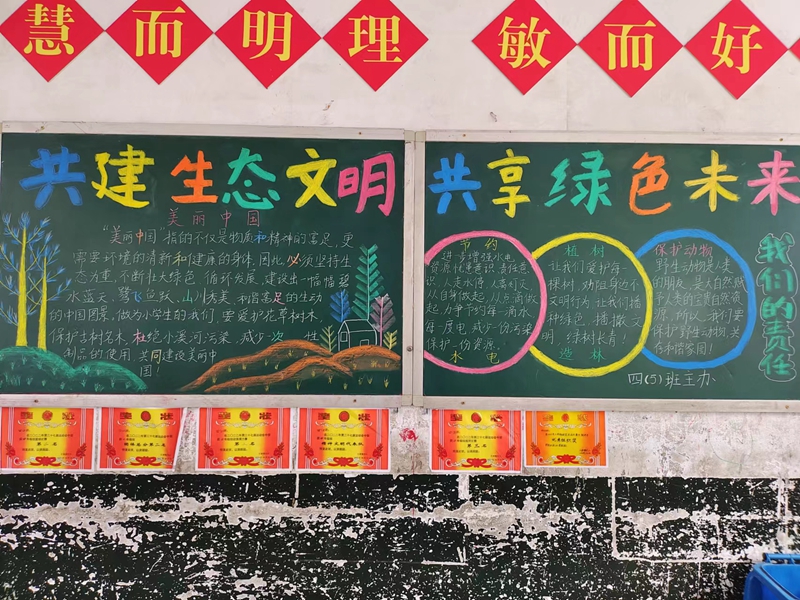 慧而明理
敏而好
共建生态文明
美丽中国
"美丽中国"指的不仅是物质和精神的富足,更
需要环境的清新和健康的身体,因此,必须坚持生
态为重,不断壮大绿色、循环发展,建设出一幅幅碧
水蓝天、鹭飞鱼跃、山川秀美、和谐满足的生动
的中国图景,做为小学生的我们,要爱护花草树木、
保护古树名木,杜绝小溪河污染,减少一次性
制品的使用,共同建设美丽中
国!
共享绿色未来
节约
进一步增强水电
资源忧患意识、责任意
识,人走水停,人离灯灭,
从自身做起,从点滴做
起,力争节约每一滴水
每一度电,减少一份污染,
保护一份资源。
水电
植树
让我们爱护每一
棵树,劝阻身边不
文明行为,让我们播
种绿色,播撒文
明,绿树长青!
造林
保护动物
野生动物是人类
的朋友,是大自然赋
予人类的宝贵自然资
源,所以,我们要
保护野生动物,共
存和谐家园!
我们的责任
四(5)班主办